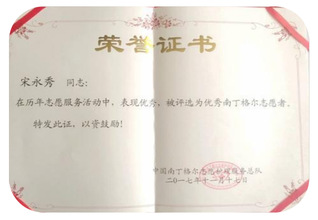 荣誉证书
宋永秀 同志：
在历年志愿服务活动中，表现优秀，被评选为优秀南丁格尔志愿者。
特发此证，以资鼓励！
中国南丁格尔志愿护理服务总队
二〇一七年十一月十七日